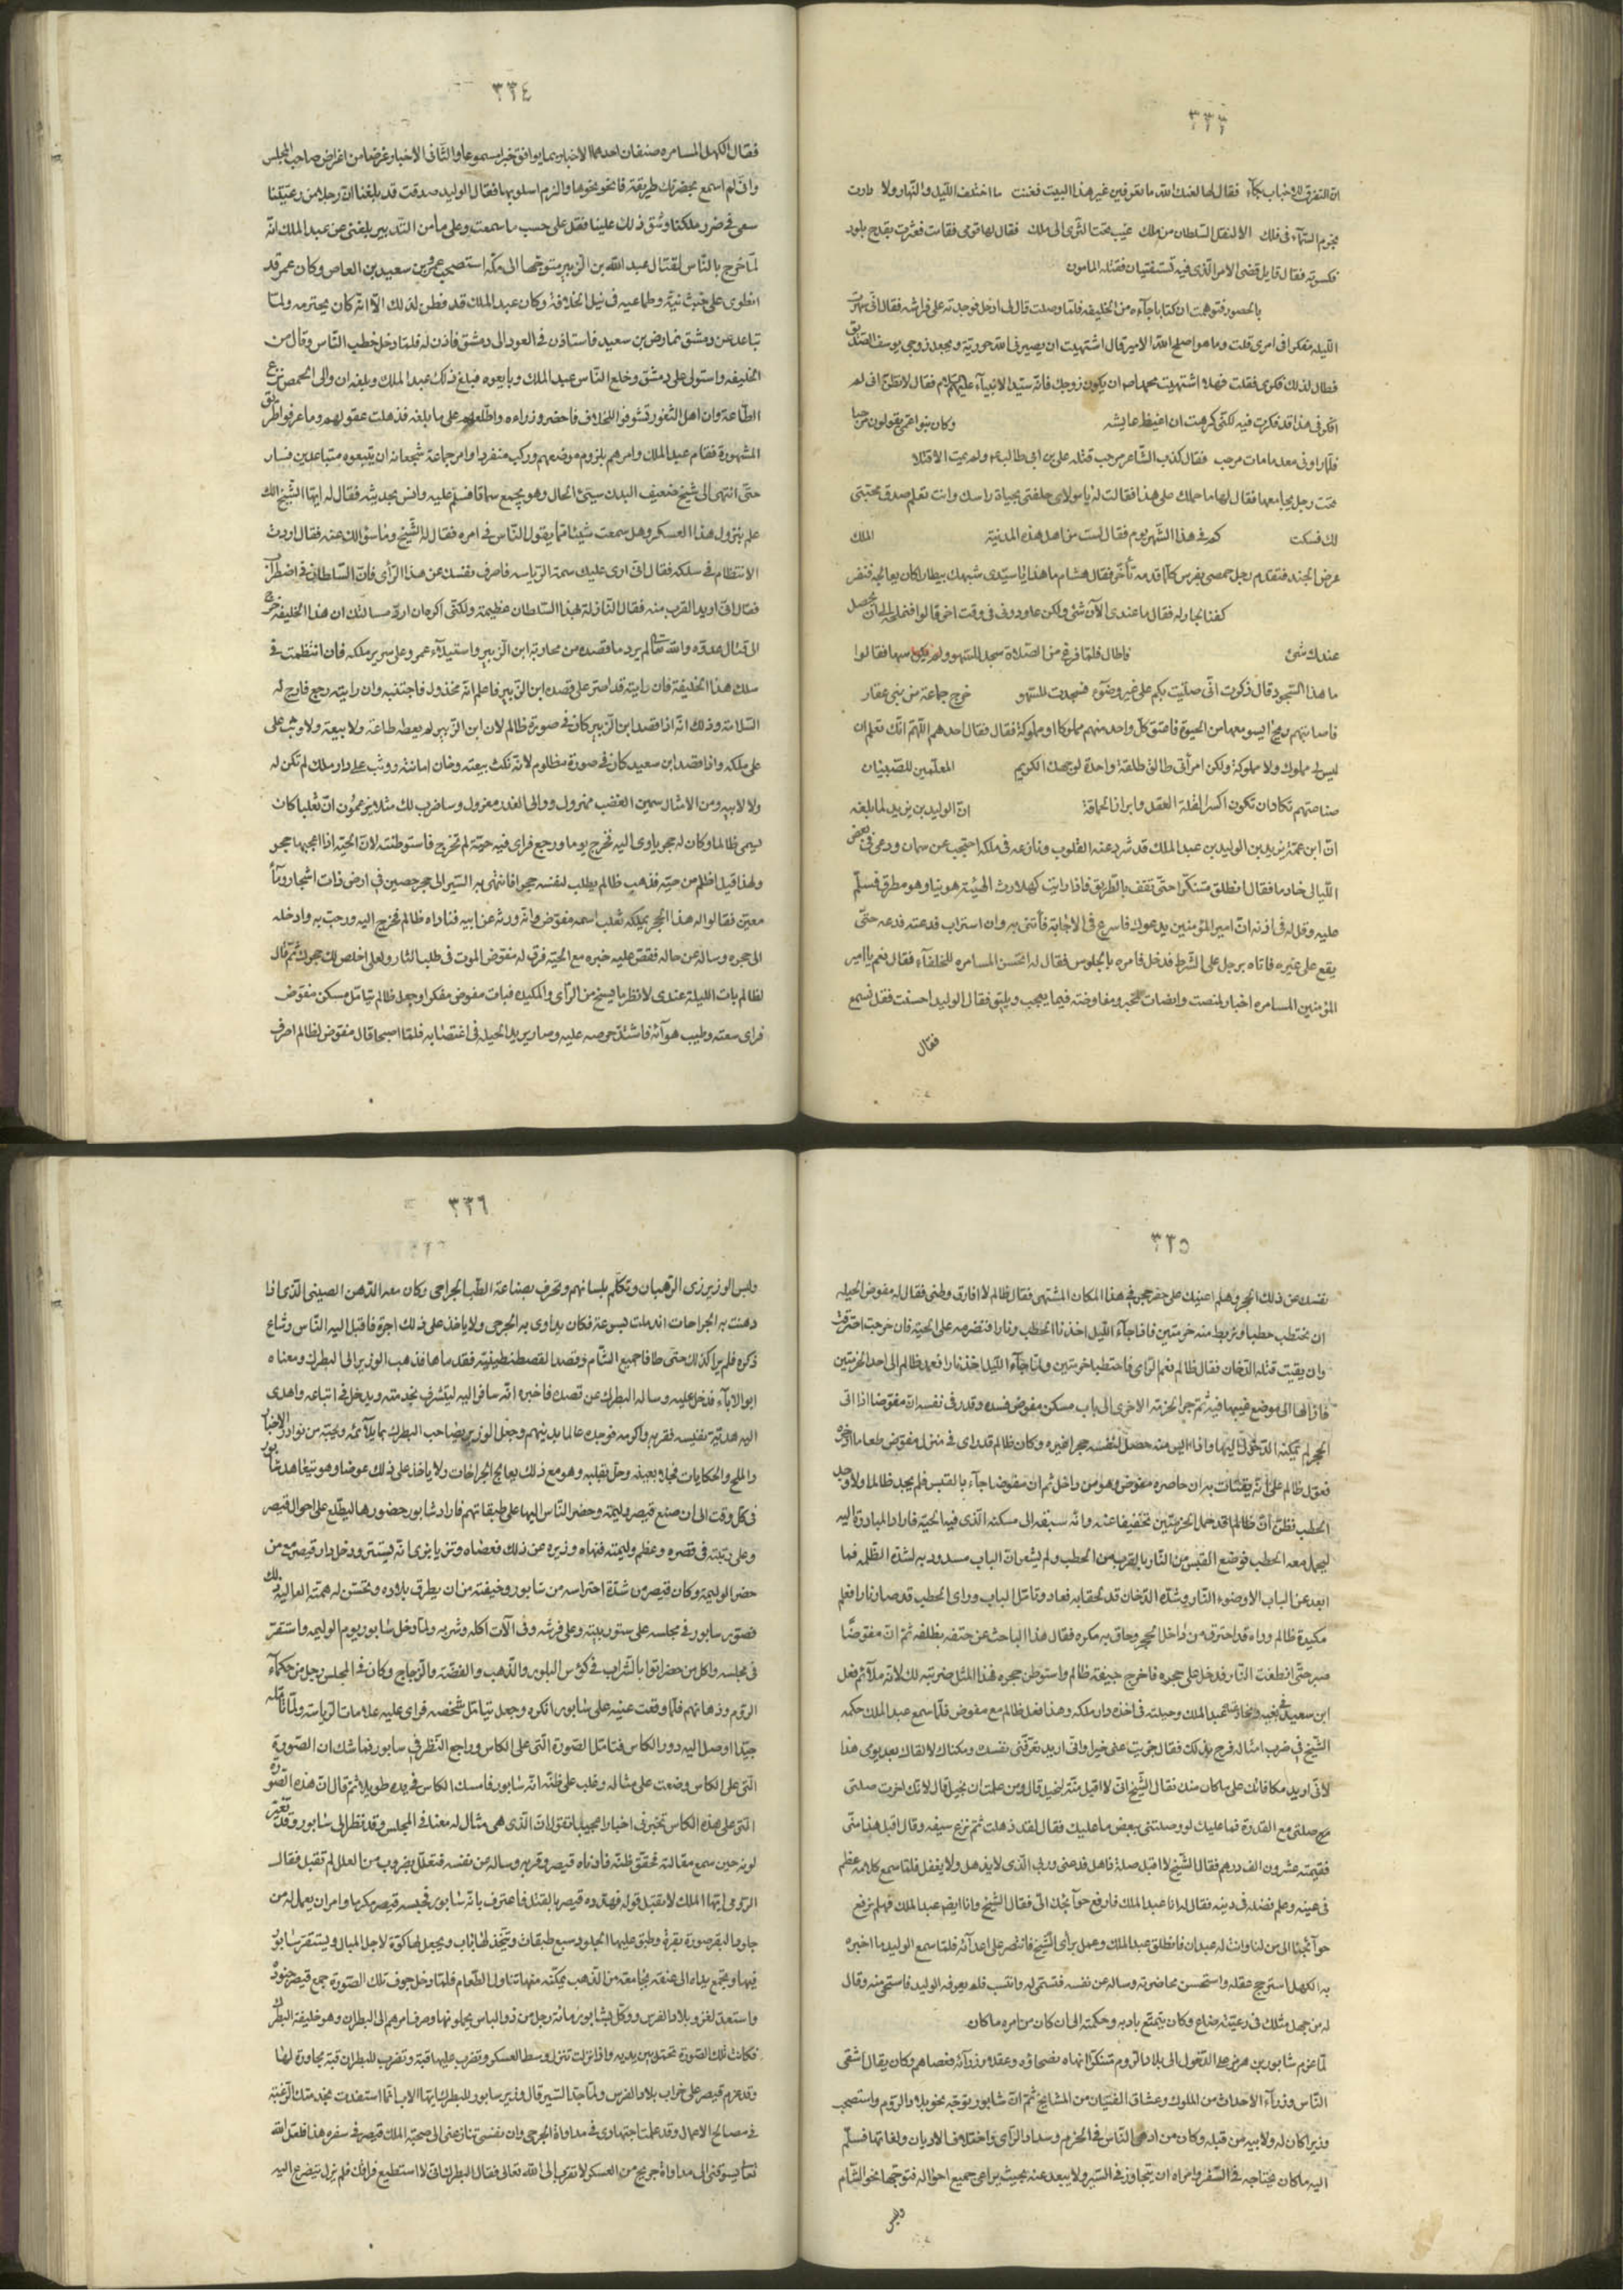 ٣٣٣
ان التفرق للاحباب بكاء فقال لها لعنك الله ما تعرفين غير هذا البيت فغنت ما اختلف الليل والنهار ولا دارت
نجوم السماء في فلك الا لنقل السلطان من ملك غيب تحت الثرى الى ملك فقال لها قومي فقامت فعثرت بقدح بلور
فكسرته فقال قايل قضى الامر الذي فيه تستفتيان فقتله المامون
بالحضور فتوهمت ان كتابا جاءه من الخليفه فلما وصلت قال لي ادخل فوجدته على فراشه فقال اني سهرت
الليله مفكرا في امري قلت وما هو اصلح الله الامير قال اشتهيت ان يصير في الله حورية ويجعل زوجي يوسف الصديق
فطال لذلك فكري فقلت فهلا اشتهيت محمدا ص ان يكون زوجك فانه سيد الانبياء عليهم فقال لا تظن اني لم
افكر في هذا قد فكرت فيه لكني كرهت ان اغيظ عايشه وكان بنو اعمى يقولون مرحبا
فلما راوني معدما مات مرحب فقال كذب الشاعر مرحب قتله علي بن ابي طالب ولم يمت الا قتلا
تحت رجل يجامعها فقال لها ما حملك على هذا فقالت له يا مولاي حلفني بحياة راسك وانت تعلم صدق محبتي
لك فسكت كم في هذا الشهر يوم فقال لست من اهل هذه المدينة الملك
عرض الجند فتقدم رجل حمصي بفرس كلما قدمه تأخر فقال هشام ما هذا فقال يا سيدي شبهك بيطار كان يعالجه فنفر
كفنا لجار له فقال ما عندي الآن شئ ولكن عاودوني في وقت اخر قالوا فنملحه الى ان يحصل
عندك شئ فاطال فلما فرغ من الصلاة سجد للسهو ولم يكن سها فقالوا
ما هذا السجود قال ذكرت اني صليت بكم على غير وضوء فسجدت للسهو خرج جماعة من بني غفار
فاصابتهم ريح ايسوا معها من الحيوة فاعتق كل واحد منهم مملوكا او مملوكة فقال فقال احدهم اللهم انك تعلم ان
ليس لي مملوك ولا مملوكة ولكن امرأتي طالق طلقة واحدة لوجهك الكريم المعلمين للصبيان
صناعتهم تكاد ان تكون اكسرا لقلة العقل وابرازا لحماقة ان الوليد بن يزيد لما بلغه
ان ابن عمه يزيد بن الوليد بن عبد الملك قد شرد عنه القلوب ونازعه في ملكه احتجب عن سمان ودعى في بعض
الليالي خادما فقال انطلق متنكرا حتى تقف بالطريق فاذا رايت كهلا رث الهيئة هوينا وهو مطرق فسلم
عليه وقل له في اذنه ان امير المؤمنين يدعوك فاسرع في الاجابة فأتني به وان استراب فدعه فدعه حتى
يقع على غيره فاتاه برجل على الشرط فدخل فامره بالجلوس فقال له اتحسن المسامره للخلفاء فقال نعم يا امير
المؤمنين المسامره اخبار لمنصت وانصات لمخبر ومفاوضة فيما يعجب ويليق فقال الوليد احسنت فقل نسمع
فقال
٣٣٤
فقال الكهل المسامره صنفان احدهما الاخبار بما يوافق خبرا مسموعا والثاني الاخبار غرضا من اغراض صاحب المجلس
واني لم اسمع بحضرتك طريقة فانحو نحوها والزم اسلوبها فقال الوليد صدقت قد بلغنا ان رجلا من رعيتنا
سعى في ضرر ملكنا وشق ذلك علينا فقل على حسب ما سمعت وعلى ما من التدبير بلغني عن عبد الملك انه
لما خرج بالناس لقتال عبد الله بن الزبير متوجها الى مكة استصحب عمرو بن سعيد بن العاص وكان عمرو قد
انطوى على خبث نية وطماعيه في نيل الخلافة وكان عبد الملك قد فطن لذلك الا انه كان يحترمه ولما
تباعد عن دمشق تمارض بن سعيد فاستاذن في العود الى دمشق فاذن له فلما دخل خطب الناس وقال من
الخليفه واستولى على دمشق وخلع الناس عبد الملك وبايعوه فبلغ ذلك عبد الملك وبلغه ان والى الحمص نزع
الطاعة وان اهل الثغور تشوفوا للخلاف فاحضر وزراءه واطلعهم على ما بلغه فذهلت عقولهم وما عرفوا طريق
المشهورة فقام عبد الملك وامرهم بلزوم موضعهم وركب منفردا وامر جماعة شجعانه ان يتبعوه متباعدين فسار
حتى انتهى الى شيخ ضعيف البدن سيئ الحال وهو يجمع سماقا فسلم عليه وانس بحديثه فقال له ايها الشيخ الك
علم بنزول هذا العسكر وهل سمعت شيئا مما يقول الناس في امره فقال له الشيخ وما سؤالك عنه فقال اردت
الانتظام في سلكه فقال اني ارى عليك سمة الرياسه فاصرف نفسك عن هذا الرأي فان السلطان في اضطراب
فقال اني اريد القرب منه فقال النازلة بهذا السلطان عظيمة ولكني اكره ان ارد مسالتك ان هذا الخليفه خرج
الى قتال عدوه والله تعالى لم يرد ما قصده من محاربة ابن الزبير واستيلاء عمرو على سرير ملكه فان انتظمت في
سلك هذا الخليفة فان رايته قد اصر على قصده ابن الزبير فاعلم انه مخذول فاجتنبه وان رايته رجع فارج له
السلامة وذلك انه اذا قصد ابن الزبير كان في صورة ظالم لان ابن الزبير لم يعطه طاعة ولا بيعة ولا وثب على
على ملكه واذا قصد ابن سعيد كان في صورة مظلوم لانه نكث بيعته وخان امانته ووثب على دار ملك لم تكن له
ولا لابيه ومن الامثال سمين الغضب مهزول ووالى الغدر معزول وساضرب لك مثلا يزعمون ان ثعلبا كان
يسمى ظالما وكان له جحر ياوى اليه فخرج يوما ورجع فراى فيه حية لم تخرج فاستوطنته لان الحية اذا اعجبها جحر
ولهذا قيل اظلم من حية فذهب ظالم يطلب لنفسه جحرا فانتهى به السير الى جحر حصين في ارض ذات اشجار وماء
معين فقالوا له هذا الجحر يملكه ثعلب اسمه مفوض وانه ورثه عن ابيه فناداه ظالم فخرج اليه ورحب به وادخله
الى جحره وساله عن حاله فقص عليه خبره مع الحية فرق له مفوض الموت في طلب الثار ولعلي اخلص لك جحرك ثم قال
لظالم بات الليلة عندى لانظر ما يسنح من الرأي والمكيده فبات مفوض مفكرا وجعل ظالم يتامل مسكن مفوض
فراى سعته وطيب هوائه فاشتد حرصه عليه وصار يريد الحيله في اغتصابه فلما اصبحا قال مفوض لظالم اصرف
٣٣٥
نفسك عن ذلك الجحر وهلم اعنيك على حفر جحر في هذا المكان المشتهى فقال ظالم لا افارق وطني فقال له مفوض الحيله
ان نحتطب حطبا ونربط منه حزمتين فاذا جاء الليل اخذنا الحطب ونارا فنضرمه على الحية فان خرجت احترقت
وان بقيت قتله الدخان فقال ظالم نعم الراى فاحتطبا حزمتين ولما جاء الليل اخذ نارا فعمد ظالم الى احد الحزمتين
فازالها الى موضع غيبها فيه ثم جر الحزمة الاخرى الى باب مسكن مفوض فسده وقدر في نفسه ان مفوضا اذا اتى
الجحر لم يمكنه الدخول اليها واذا ايس منه حصل لنفسه جحرا غيره وكان ظالم قد راى في منزل مفوض طعاما ادخره
فعول ظالم على انه يقتات به ان حاصره مفوض وهو من داخل ثم ان مفوضا جاء بالقبس فلم يجد ظالما ولا وجد
الحطب فظن أن ظالما قد حمل الحزمتين تخفيفا عنه وانه سبقه الى مسكنه الذي فيه الحية فاراد المبادرة اليه
ليحمل معه الحطب فوضع القبس من النار بالقرب من الحطب ولم يشعر ان الباب مسدود به لشدة الظلمه فما
ابعد عن الباب الا وضوء النار وشدة الدخان قد لحقا به فعاد وتامل الباب وراى الحطب قد صار نارا فعلم
مكيدة ظالم وراه قد احترق من داخل الجحر وحاق به مكره فقال هذا الباحث عن حتفه بظلفه ثم ان مفوضا
صبر حتى انطفت النار فدخل على جحره فاخرج جيفة ظالم واستوطن جحره فهذا المثل ضربته لك لانه ملائم فعل
ابن سعيد في بغيه ومخادعته عبد الملك وحيلته في اخذه دار ملكه وهذا فعل ظالم مع مفوض فلما سمع عبد الملك حكمة
الشيخ في ضرب امثاله فرح بذلك فقال جزيت عني خيرا واني اريد تعرفني نفسك ومكانك لالقاك بعد يومى هذا
لاني اريد مكافاتك على ما كان منك فقال الشيخ اني لا اقبل منة لبخيل قال ومن علمت ان بخيل قال لانك اخرت صلتى
مع صلتي مع القدرة فما عليك لو وصلتني ببعض ما عليك فقال لقد ذهلت ثم نزع سيفه وقال اقبل هذا منى
فقيمته عشرون الف درهم فقال الشيخ لا اقبل صلة ذاهل فدعني وربي الذي لا يذهل ولا يغفل فلما سمع كلامه عظم
في عينه وعلم فضله في دينه فقال له انا عبد الملك فارفع حوائجك الي فقال الشيخ وانا ايضا عبد الملك فهلم نرفع
حوائجنا الى من انا وانت له عبدان فانطلق عبد الملك وعمل برأى الشيخ فانتصر على اعدائه فلما سمع الوليد ما اخبره
به الكهل استرجح عقله واستحسن محاضرته وساله عن نفسه فتسمى له وانتسب فلم يعرفه الوليد فاستحى منه وقال
له من جهل مثلك في رعيته ضاع وكان يتمتع بادبه وحكمته الى ان كان من امره ما كان
لما عزم شابور بن هرمز على الدخول الى بلاد الروم متنكرا نهاه نصحاؤه وعقلا وزرائه فعصاهم وكان يقال اشقى
الناس وزراء الاحداث من الملوك وعشاق الفتيان من المشايخ ثم ان شابور توجه نحو بلاد الروم واستصحب
وزيرا كان له ولابيه من قبله وكان من ادهى الناس في الحزم وسداد الرأي واختلاف الاديان ولغاتها فسلم
اليه ما كان يحتاجه في السفر وامراه ان يتجاوز في السير ولا يبعد عنه بحيث يراعى جميع احواله فتوجها نحو الشام
ولبس
٣٣٦
ولبس الوزير زى الرهبان وتكلم بلسانهم وتحرف بصناعة الطب الجراحى وكان معه الدهن الصيني الذي اذا
دهنت به الجراحات اندملت بسرعة فكان يداوى به الجرحى ولا ياخذ على ذلك اجرة فاقبل اليه الناس وشاع
ذكره فلم يزالا كذلك حتى طافا جميع الشام وقصدا القسطنطينية فقدماها فذهب الوزير الى البطرك ومعناه
ابو الآباء فدخل عليه وساله البطرك عن قصده فاخبره انه سافر اليه ليتشرف بخدمته ويدخل في اتباعه واهدى
اليه هدية نفيسه فقربه واكرمه فوجده عالما بدينهم وجعل الوزير يصاحب البطرك بما يلائمه ويحبه من نوادر الاخبار
والملح والحكايات فحلا بعينه وحل بقلبه وهو مع ذلك يعالج الجراحات ولا ياخذ على ذلك عوضا وهو يتعاهد شابور
في كل وقت الى ان صنع قيصر وليمة وحضر الناس اليها على طبقاتهم فاراد شابور حضورها ليطلع على احوال قيصر
وعلى رتبته في قصره وعظم وليمته فنهاه وزيره عن ذلك فعصاه وتزيا بزى انه يستتر ودخل دار قيصر مع من
حضر الوليمة وكان قيصر من شدة احتراسه من شابور وخيفته من ان يطرق بلاده وتحسن له همته العالية ذلك
فصور سابور في مجلسه على ستور بيته وعلى فرشه وفى آلات اكله وشربه ولما دخل شابور يوم الوليمه واستقر
في مجلسه واكل من حضر اتوا بالشراب في كؤس البلور والذهب والفضة والزجاج وكان في المجلس رجل من حكماء
الروم ودهاتهم فلما وقعت عينيه على شابور انكره وجعل يتامل شخصه فراى عليه علامات الرياسة ولما تأمله
جيدا اوصل اليه دور الكاس فتامل الصورة التي على الكاس وراجع النظر في سابور فما شك ان الصورة
التي على الكاس وضعت على مثاله وغلب على ظنه انه شابور فامسك الكاس في يده طويلا ثم قال ان هذه الصورة
التي على هذه الكاس تخبرني اخبارا عجيبا تقول ان الذي هي مثال له معنا في المجلس وقد نظر الى شابور وقد تغير
لونه حين سمع مقالته فحقق ظنه فادناه قيصر وقربه وساله عن نفسه فتعلل بضروب من العلل لم تقبل فقال
الرومى ايها الملك لا تقبل قوله فهدده قيصر بالقتل فاعترف بانه شابور فحبسه قيصر مكرما وامر ان يعمل له من
جلود البقر صورة بقرة وطبق عليها الجلود سبع طبقات وتتخذ لها باب ويجعل لها كوة لاجل المبال ويستقر شابور
فيها وتجمع يداه الى عنقه بجامعة من الذهب يمكنه منها تناول الطعام فلما دخل جوف تلك الصورة جمع قيصر جنوده
واستعد لغزو بلاد الفرس ووكل بشابور مائة رجل من ذو الباس يحملونها وصرف امرهم الى المطران وهو خليفة البطرك
فكانت تلك الصورة تحمل بين يديه واذا نزلت تنزل وسط العسكر وتضرب عليها قبة وتضرب للمطران قبة مجاورة لها
وقد عزم قيصر على خراب بلاد الفرس ولما جد السير قال وزير سابور للبطرك ايها الاب انما استفدت بخدمتك الرغبة
في مصالح الاعمال وقد علمت اجتهادى في مداواة الجرحى وان نفسى تنازعنى الى صحبة الملك قيصر في سفره هذا فلعل الله
تعالى يسوقنى الى مداواة جريح من العسكر لاتقرب الى الله تعالى فقال البطرك اني لا استطيع فراقك فلم يزل يتضرع اليه